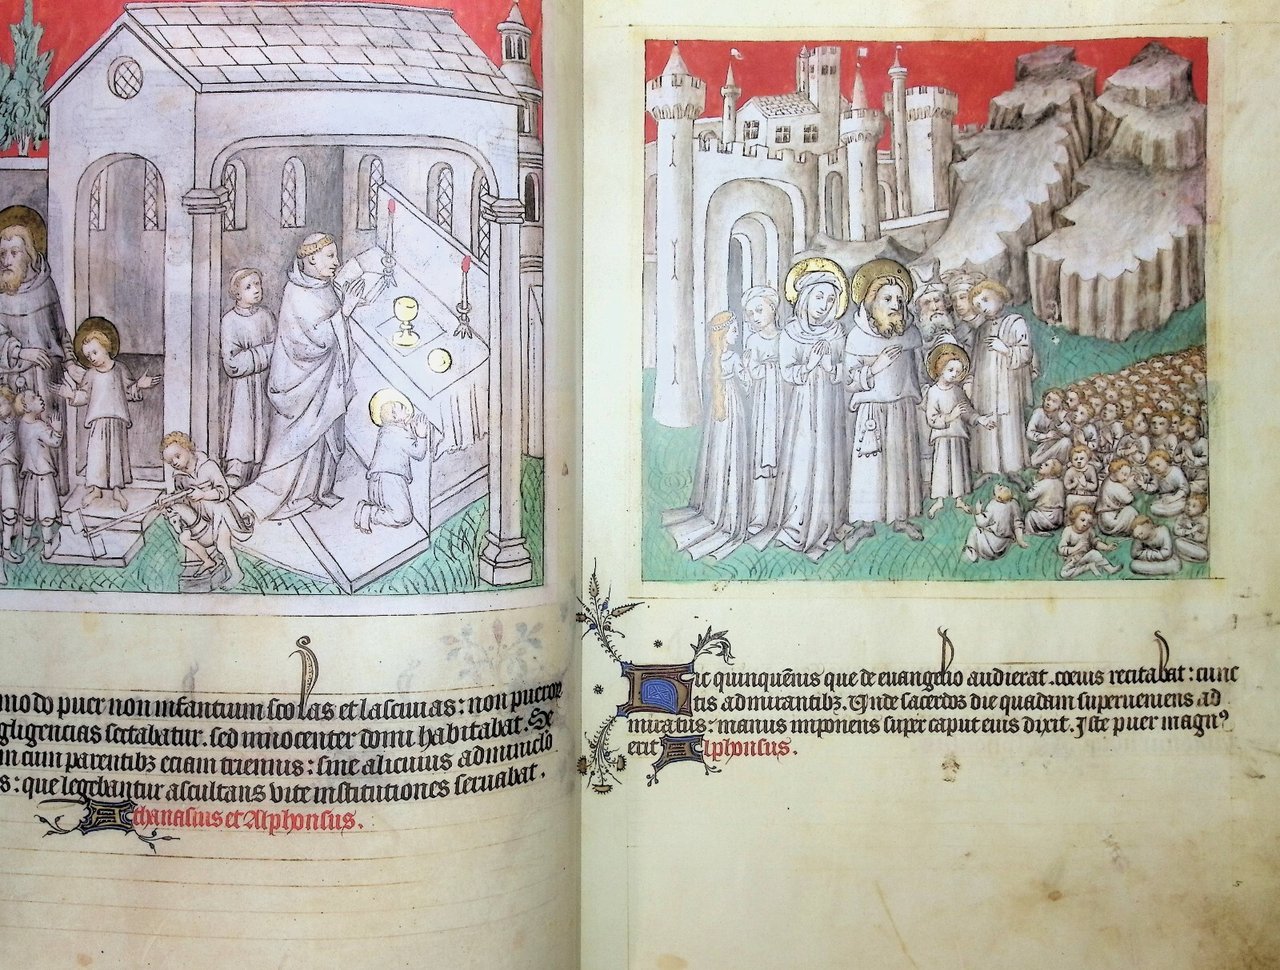 modo puer non infantium scolas et lascivias: non pueror
gligencias sectabatur. sed innocenter domi habitabat. Se
m cum parentibz etiam triennis: sine alicuius adminiculo
s: que legebantur ascultans vite institutiones servabat.
Athanasius et Alphonsus.
Hic quinquēnis que de euangelio audierat. coeuis recitabat: cunc
tis admirantibz. Unde sacerdos die quadam superveniens ad
miratus: manus imponens super caput eius dixit. Iste puer magnꝰ
erit Alphonsus.